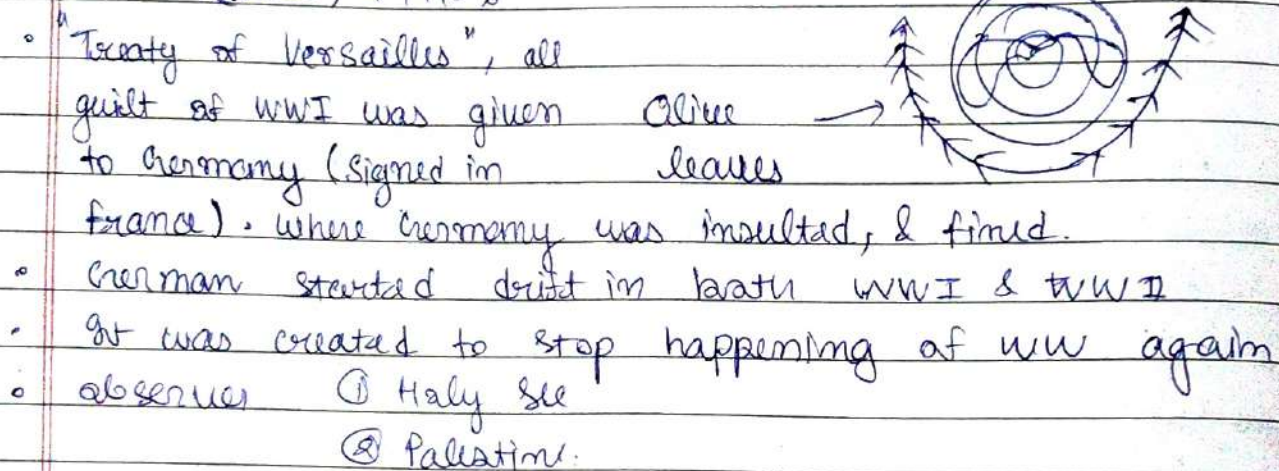 "Treaty of Versailles", all
guilt of WWI was given
to Germany (signed in
france). where Germany was insulted, & fined.
Olive leaves
• German started drift in both WWI & WWII
• It was created to stop happening of WW again
• observer ① Holy See
② Palestine.